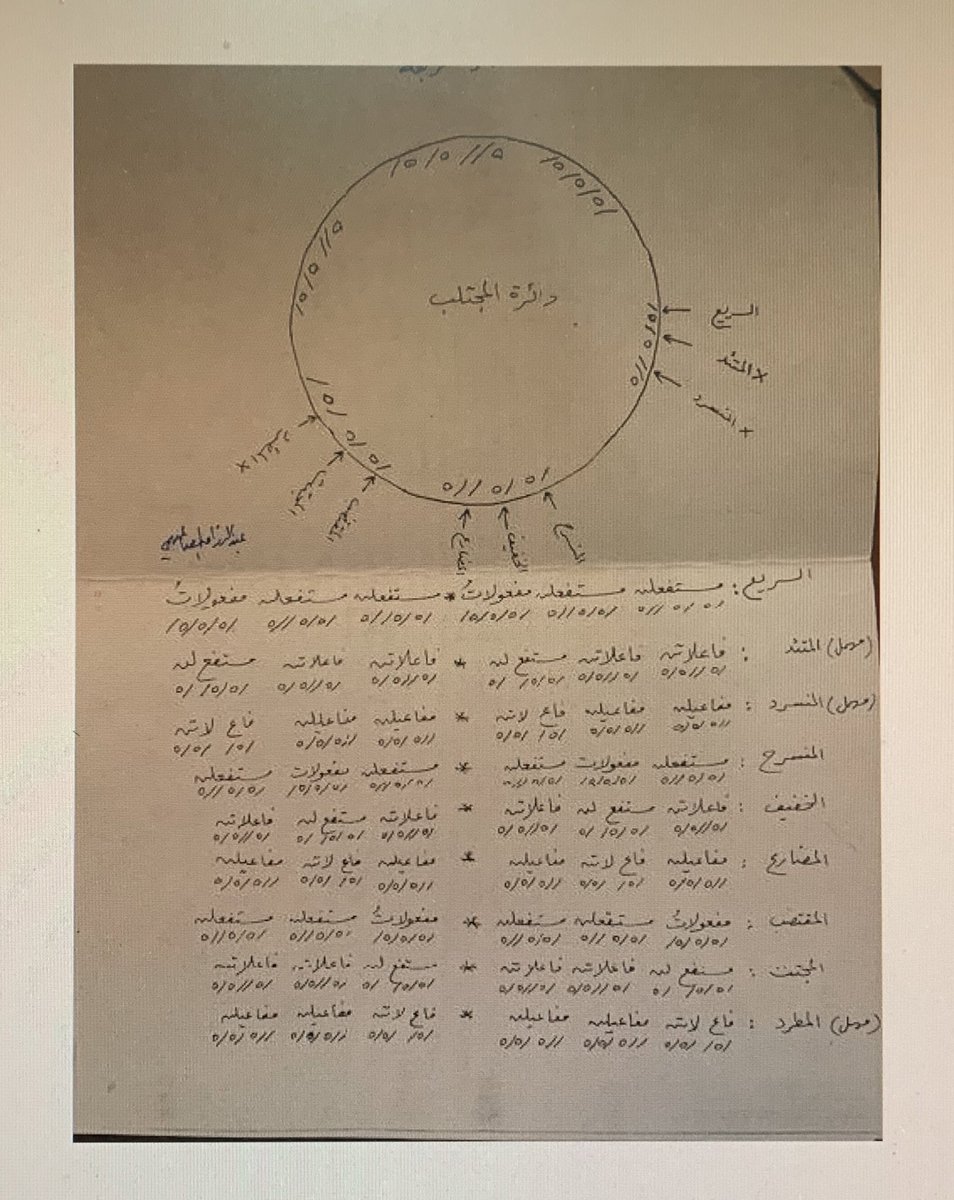 دائرة المجتلب
السريع
× المتئد
× المنسرد
المنسرح
الخفيف
المضارع
المقتضب
المجتث
× المطرد
السريع : مستفعلن مستفعلن مفعولاتُ * مستفعلن مستفعلن مفعولاتُ
/٥/٥//٥ /٥/٥//٥ /٥/٥/٥/ /٥/٥//٥ /٥/٥//٥ /٥/٥/٥/
(مهمل) المتئد : فاعلاتن فاعلاتن مستفع لن * فاعلاتن فاعلاتن مستفع لن
/٥//٥/٥ /٥//٥/٥ /٥/٥/ /٥ /٥//٥/٥ /٥//٥/٥ /٥/٥/ /٥
(مهمل) المنسرد : مفاعيلن مفاعيلن فاع لاتن * مفاعيلن مفاعيلن فاع لاتن
//٥/٥/٥ //٥/٥/٥ /٥/ /٥/٥ //٥/٥/٥ //٥/٥/٥ /٥/ /٥/٥
المنسرح : مستفعلن مفعولات مستفعلن * مستفعلن مفعولات مستفعلن
/٥/٥//٥ /٥/٥/٥/ /٥/٥//٥ /٥/٥//٥ /٥/٥/٥/ /٥/٥//٥
الخفيف : فاعلاتن مستفع لن فاعلاتن * فاعلاتن مستفع لن فاعلاتن
/٥//٥/٥ /٥/٥/ /٥ /٥//٥/٥ /٥//٥/٥ /٥/٥/ /٥ /٥//٥/٥
المضارع : مفاعيلن فاع لاتن مفاعيلن * مفاعيلن فاع لاتن مفاعيلن
//٥/٥/٥ /٥/ /٥/٥ //٥/٥/٥ //٥/٥/٥ /٥/ /٥/٥ //٥/٥/٥
المقتضب : مفعولاتُ مستفعلن مستفعلن * مفعولاتُ مستفعلن مستفعلن
/٥/٥/٥/ /٥/٥//٥ /٥/٥//٥ /٥/٥/٥/ /٥/٥//٥ /٥/٥//٥
المجتث : مستفع لن فاعلاتن فاعلاتن * مستفع لن فاعلاتن فاعلاتن
/٥/٥/ /٥ /٥//٥/٥ /٥//٥/٥ /٥/٥/ /٥ /٥//٥/٥ /٥//٥/٥
(مهمل) المطرد : فاع لاتن مفاعيلن مفاعيلن * فاع لاتن مفاعيلن مفاعيلن
/٥/ /٥/٥ //٥/٥/٥ //٥/٥/٥ /٥/ /٥/٥ //٥/٥/٥ //٥/٥/٥